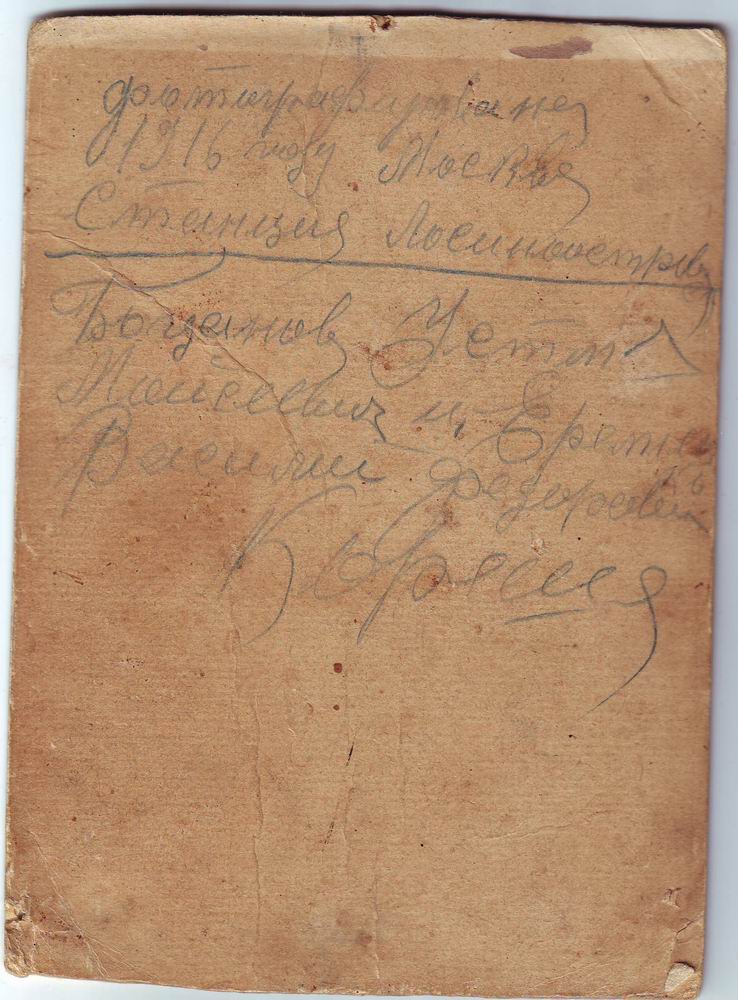 фотографирована
1916 году Москва
Станция Лосиноостров
Богданов Устин
Моисеевич и Еремен
Василий Федорович